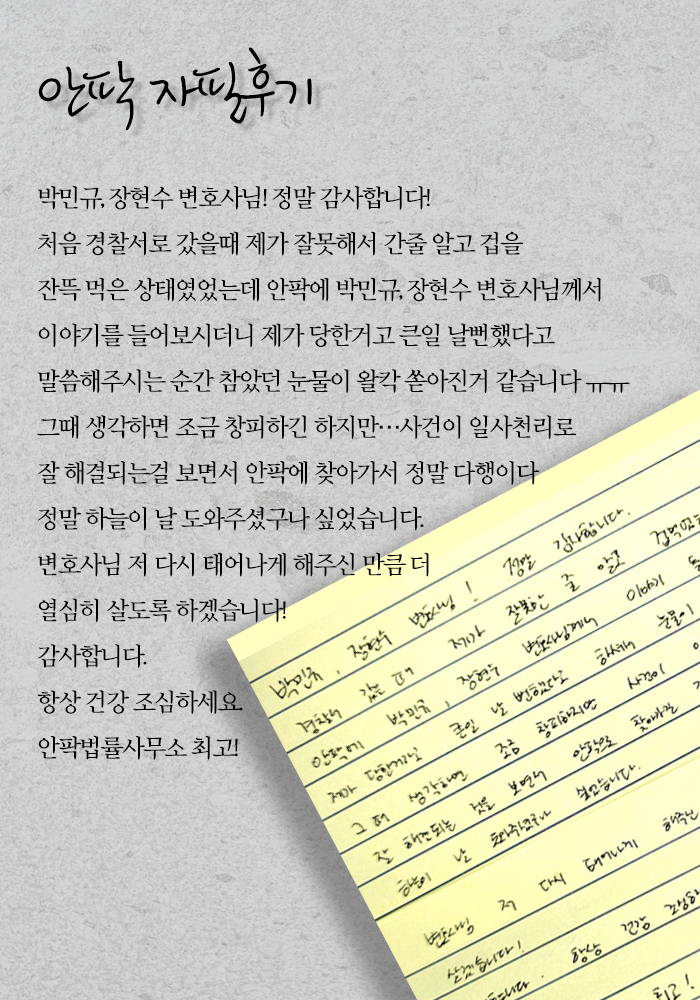 안팍 자필후기
박민규, 장현수 변호사님! 정말 감사합니다!
처음 경찰서로 갔을때 제가 잘못해서 간줄 알고 겁을
잔뜩 먹은 상태였었는데 안팍에 박민규, 장현수 변호사님께서
이야기를 들어보시더니 제가 당한거고 큰일 날뻔했다고
말씀해주시는 순간 참았던 눈물이 왈칵 쏟아진거 같습니다 ㅠㅠ
그때 생각하면 조금 창피하긴 하지만…사건이 일사천리로
잘 해결되는걸 보면서 안팍에 찾아가서 정말 다행이다
정말 하늘이 날 도와주셨구나 싶었습니다.
변호사님 저 다시 태어나게 해주신 만큼 더
열심히 살도록 하겠습니다!
감사합니다.
항상 건강 조심하세요.
안팍법률사무소 최고!
박민규, 장현수 변호사님! 정말 감사합니다.
경찰서 갔을 때 제가 잘못한 줄 알고
안팍에 박민규, 장현수 변호사님께서 이야기
제가 당한거고 큰일 날 뻔했다고 하셔서 눈물이
그 때 생각하면 조금 창피하지만 사건이
잘 해결되는 것을 보면서 안팍으로 찾아가길
하늘이 날 도와주셨구나 싶었습니다.
변호사님 저 다시 태어나게 해주신
살겠습니다! 항상 건강
최고!